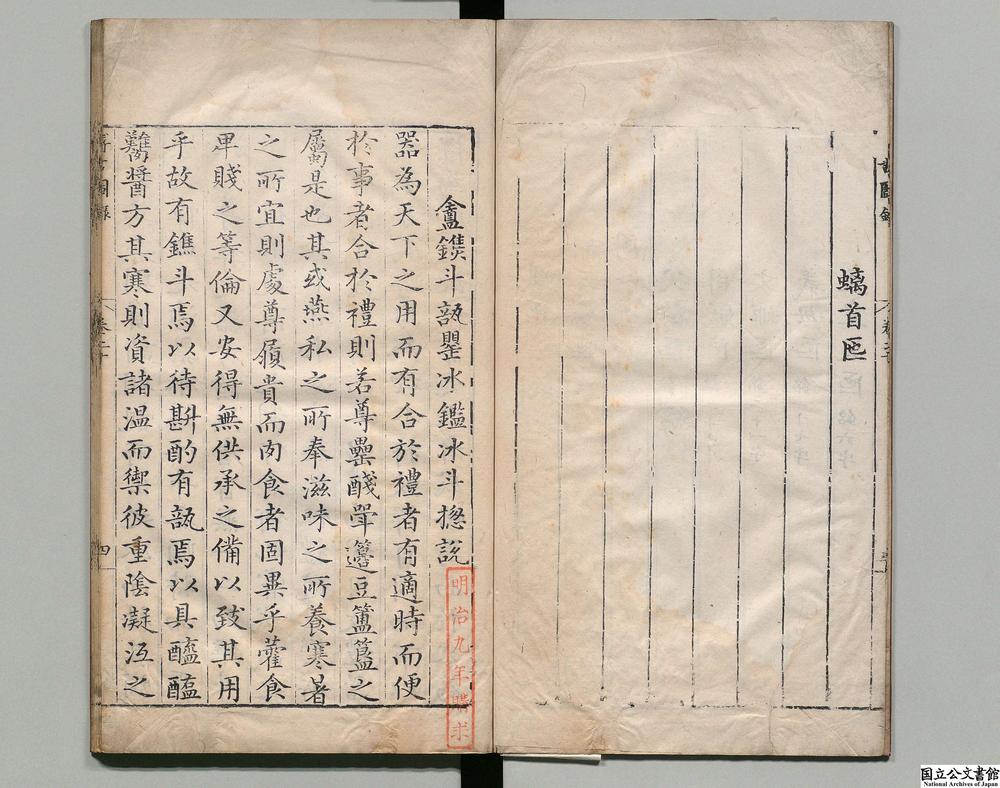 螭首匜
盦鐎斗瓿罌冰鑑冰斗揔說
器為天下之用而有合於禮者有適時而便
於事者合於禮則若尊罍醆斝籩豆簠簋之
屬是也其或燕私之所奉滋味之所養寒暑
之所宜則處尊履貴而肉食者固異乎藿食
卑賤之等倫又安得無供承之備以致其用
乎故有鐎斗焉以待斟酌有瓿焉以具醯醢
醬方其寒則資諸温而禦彼重陰凝沍之
四
明治九年購求
国立公文書館
National Archives of Japan